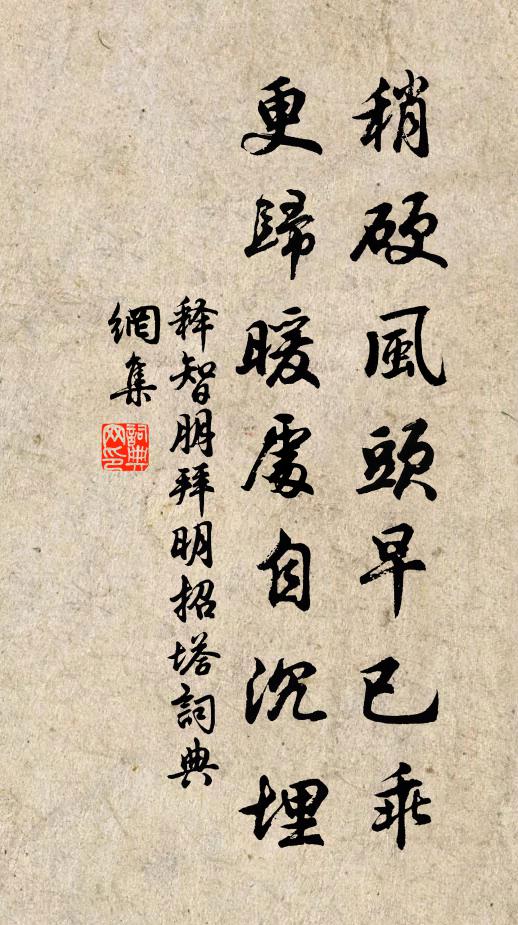 稍硬風頭早已乖
更歸暖處自沉埋
释智朋拜明招塔詞典
網集
詞典
网印